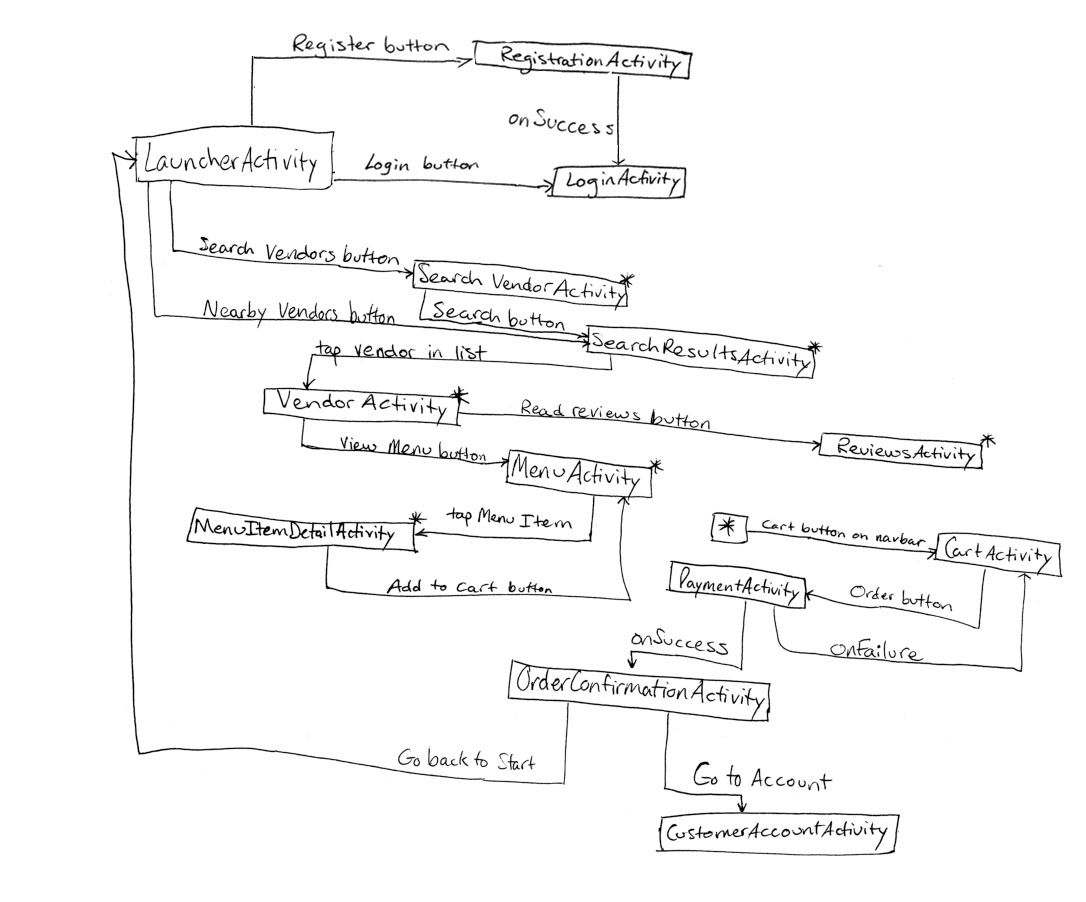 Register button
RegistrationActivity
onSuccess
LauncherActivity
Login button
LoginActivity
Search Vendors button
Search VendorActivity *
Nearby Vendors button
Search button
SearchResultsActivity *
tap vendor in list
Vendor Activity *
Read reviews button
ReviewsActivity *
View Menu button
MenuActivity *
tap Menu Item
MenuItemDetailActivity *
Add to Cart button
*
Cart button on navbar
CartActivity
PaymentActivity
Order button
onSuccess
onFailure
OrderConfirmationActivity
Go back to Start
Go to Account
CustomerAccountActivity